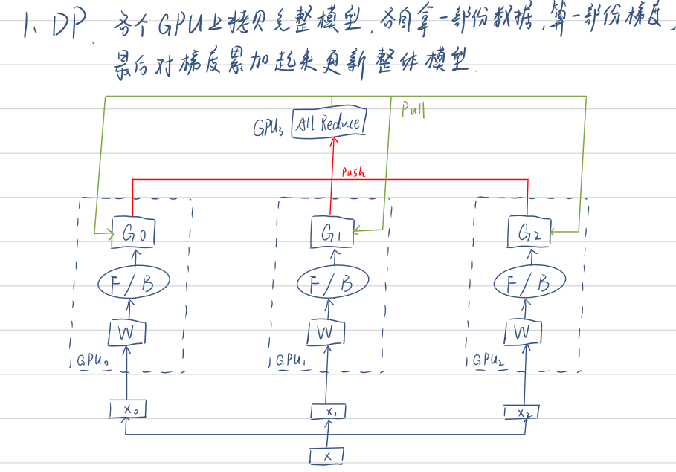 1、DP. 各个GPU上拷贝完整模型,各自拿一部份数据,算一部份梯度,
最后对梯度累加起来更新整体模型.
GPU3 All Reduce
Pull
Push
G0 G1 G2
F/B F/B F/B
W W W
GPU0 GPU1 GPU2
x0 x1 x2
x